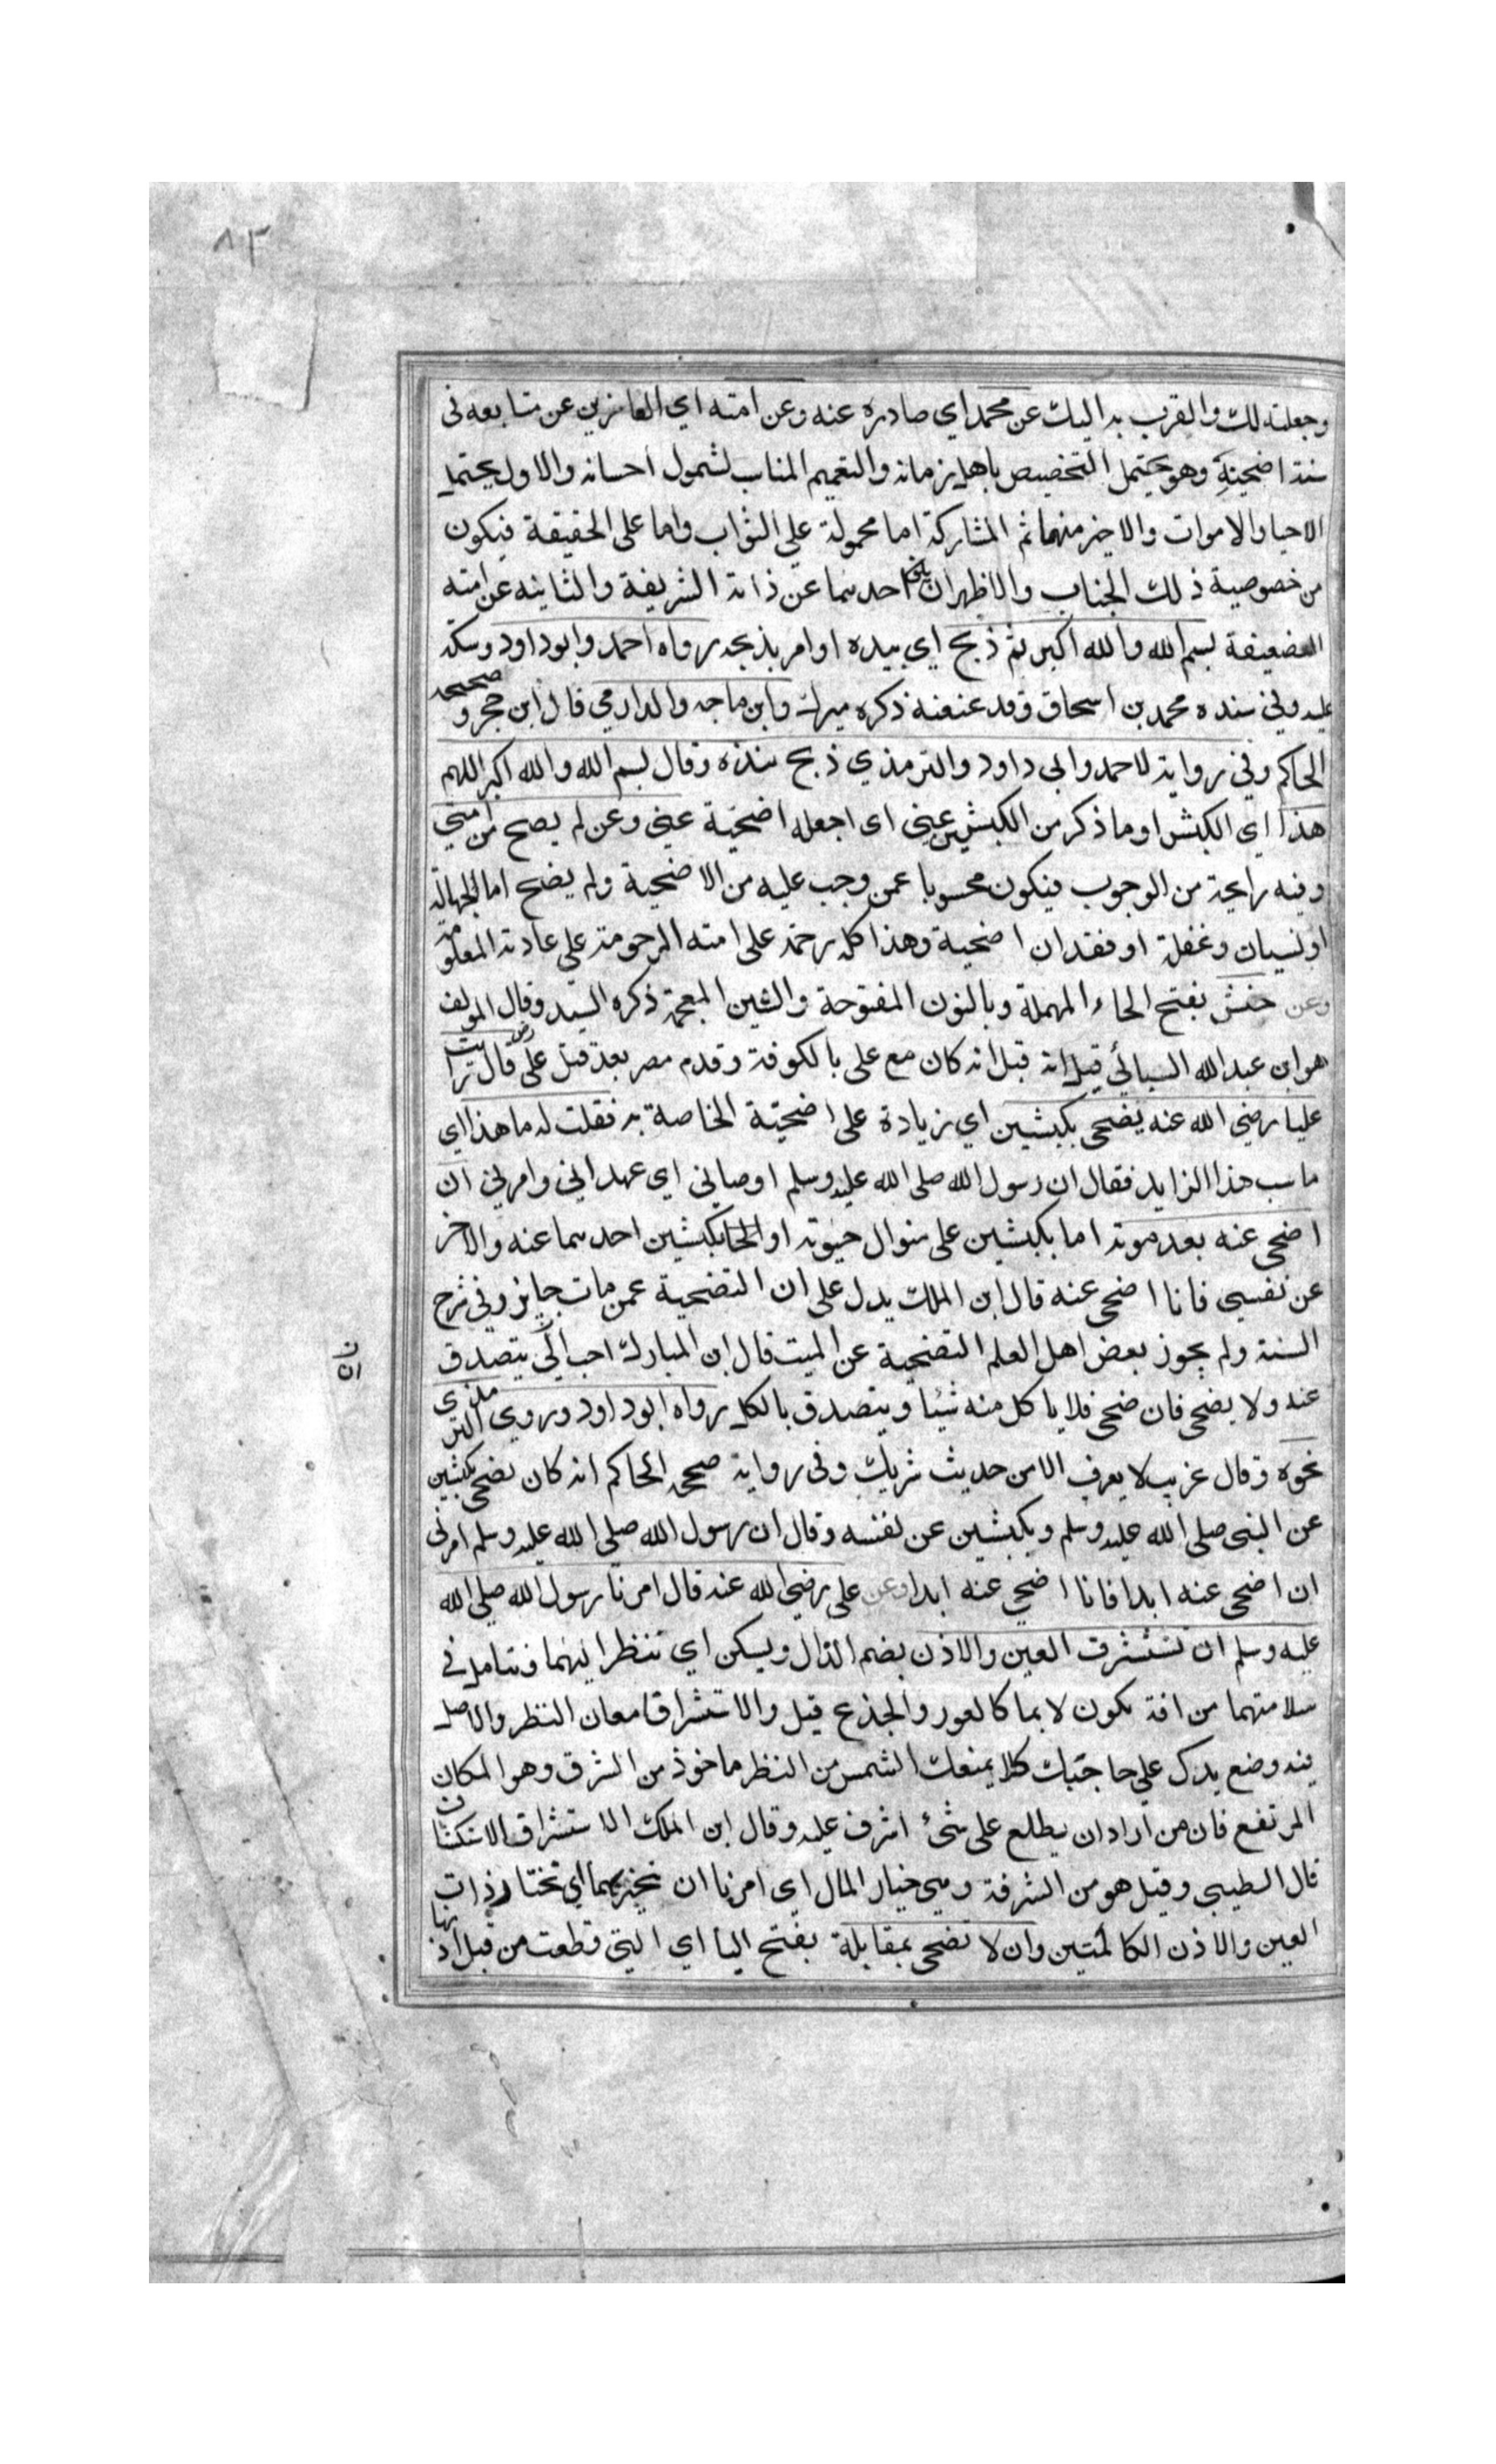 ٨٣
وجعلته لك والقرب به اليك عن محمد اي صادره عنه وعن امته اي العاجزين عن متابعه في
سنة اضحيته وهو يحتمل التخصيص باهل زمانه والتعميم المناسب لشمول احسانه والاول يحتمل
الاحيا والاموات والاخير منهما ثم المشاركة اما محمولة على الثواب واما على الحقيقة فيكون
من خصوصية ذلك الجناب والاظهر ان يكون احدهما عن ذاته الشريفة والثانيه عن امته
الضعيفة بسم الله والله اكبر ثم ذبح اي بيده او امر بذبحه رواه احمد وابو داود وسكت
عليه وفي سنده محمد بن اسحاق وقد عنعنه ذكره ميرك وابن ماجه والدارمي قال ابن حجر وصححه
الحاكم وفي رواية لاحمد وابي داود والترمذي ذبح بيده وقال بسم الله والله اكبر اللهم
هذا اي الكبش او ما ذكر من الكبشين عني اي اجعله اضحية عني وعن لم يضح من امتي
وفيه رايحة من الوجوب فيكون محسوبا عمن وجب عليه من الاضحية ولم يضح اما لجهالة
او نسيان وغفلة او فقدان اضحية وهذا كله رحمة على امته المرحومة على عادته المعلومة
وعن حنش بفتح الحاء المهملة وبالنون المفتوحة والشين المعجمة ذكره السيد وقال المولف
هو ابن عبد الله السبائي قيل انه قيل انه كان مع علي بالكوفة وقدم مصر بعد قتل علي رض قال رايت
عليا رضي الله عنه يضحي بكبشين اي زيادة على اضحيته الخاصة به فقلت له ما هذا اي
ما سبب هذا الزايد فقال ان رسول الله صلى الله عليه وسلم اوصاني اي عهد الي وامرني ان
اضحي عنه بعد موته اما بكبشين على منوال حيوته او بكبشين احدهما عنه والاخر
عن نفسي فانا اضحي عنه قال ابن الملك يدل على ان التضحية عمن مات جايز وفي شرح
السنة ولم يجوز بعض اهل العلم التضحية عن الميت قال ابن المبارك احب الي يتصدق
ان ن
عنه ولا يضحى فان ضحى فلا ياكل منه شيئا ويتصدق بالكل رواه ابو داود وروي الترمذي
نحوه وقال غريب لا يعرف الا من حديث شريك وفي رواية صححه الحاكم انه كان يضحي بكبشين
عن النبي صلى الله عليه وسلم وبكبشين عن نفسه وقال ان رسول الله صلى الله عليه وسلم امرني
ان اضحي عنه ابدا فانا اضحي عنه ابدا وعن علي رضي الله عنه قال امرنا رسول الله صلى الله
عليه وسلم ان نستشرف العين والاذن بضم الذال ويسكن اي ننظر اليهما ونتامل في
سلامتهما من افة تكون لا بما كالعور والجذع قيل والاستشراف امعان النظر والاصل
فيه وضع يدك على حاجبك كلا يمنعك الشمس من النظر ماخوذ من الشرف وهو المكان
المرتفع فان من اراد ان يطلع على شئ اشرف عليه وقال ابن الملك الاستشراف الاستكشاف
قال الطيبي وقيل هو من الشرفة وهي خيار المال اي امرنا ان نختارهما اي نختار ذات
العين والاذن الكاملتين وان لا نضحي بمقابلة بفتح البا اي التي قطعت من قبل اذنها